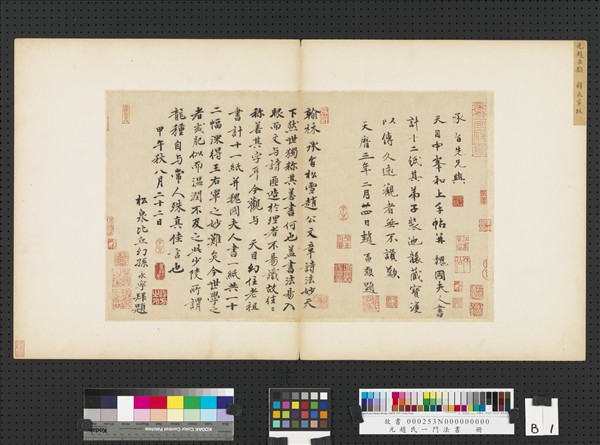 承旨先兄與
天目中峯和上手帖并 魏國夫人書
計十二紙其弟子裝池蘊藏寶護
以傳久遠觀者無不讚歎
天曆三年二月廿四日趙 孟籲題
翰林承旨松雪趙公文章詩法妙天
下然世獨稱其善書何也蓋書法易入
眼而文与詩匪造於理者不易識故往々
稱善其字耳今觀与 天目幻住老祖
書計十一紙并魏國夫人書一紙共一十
二幅深得王右軍之妙難矣今世學之
者或記似而溫潤不及之此少陵所謂
龍種自与常人殊真佳言也
甲午秋八月二十二日
松泉比丘幻孫永寧拜題
KODAK Color Control Patches
故書 000253N000000000
元趙氏一門法書 冊
B 1